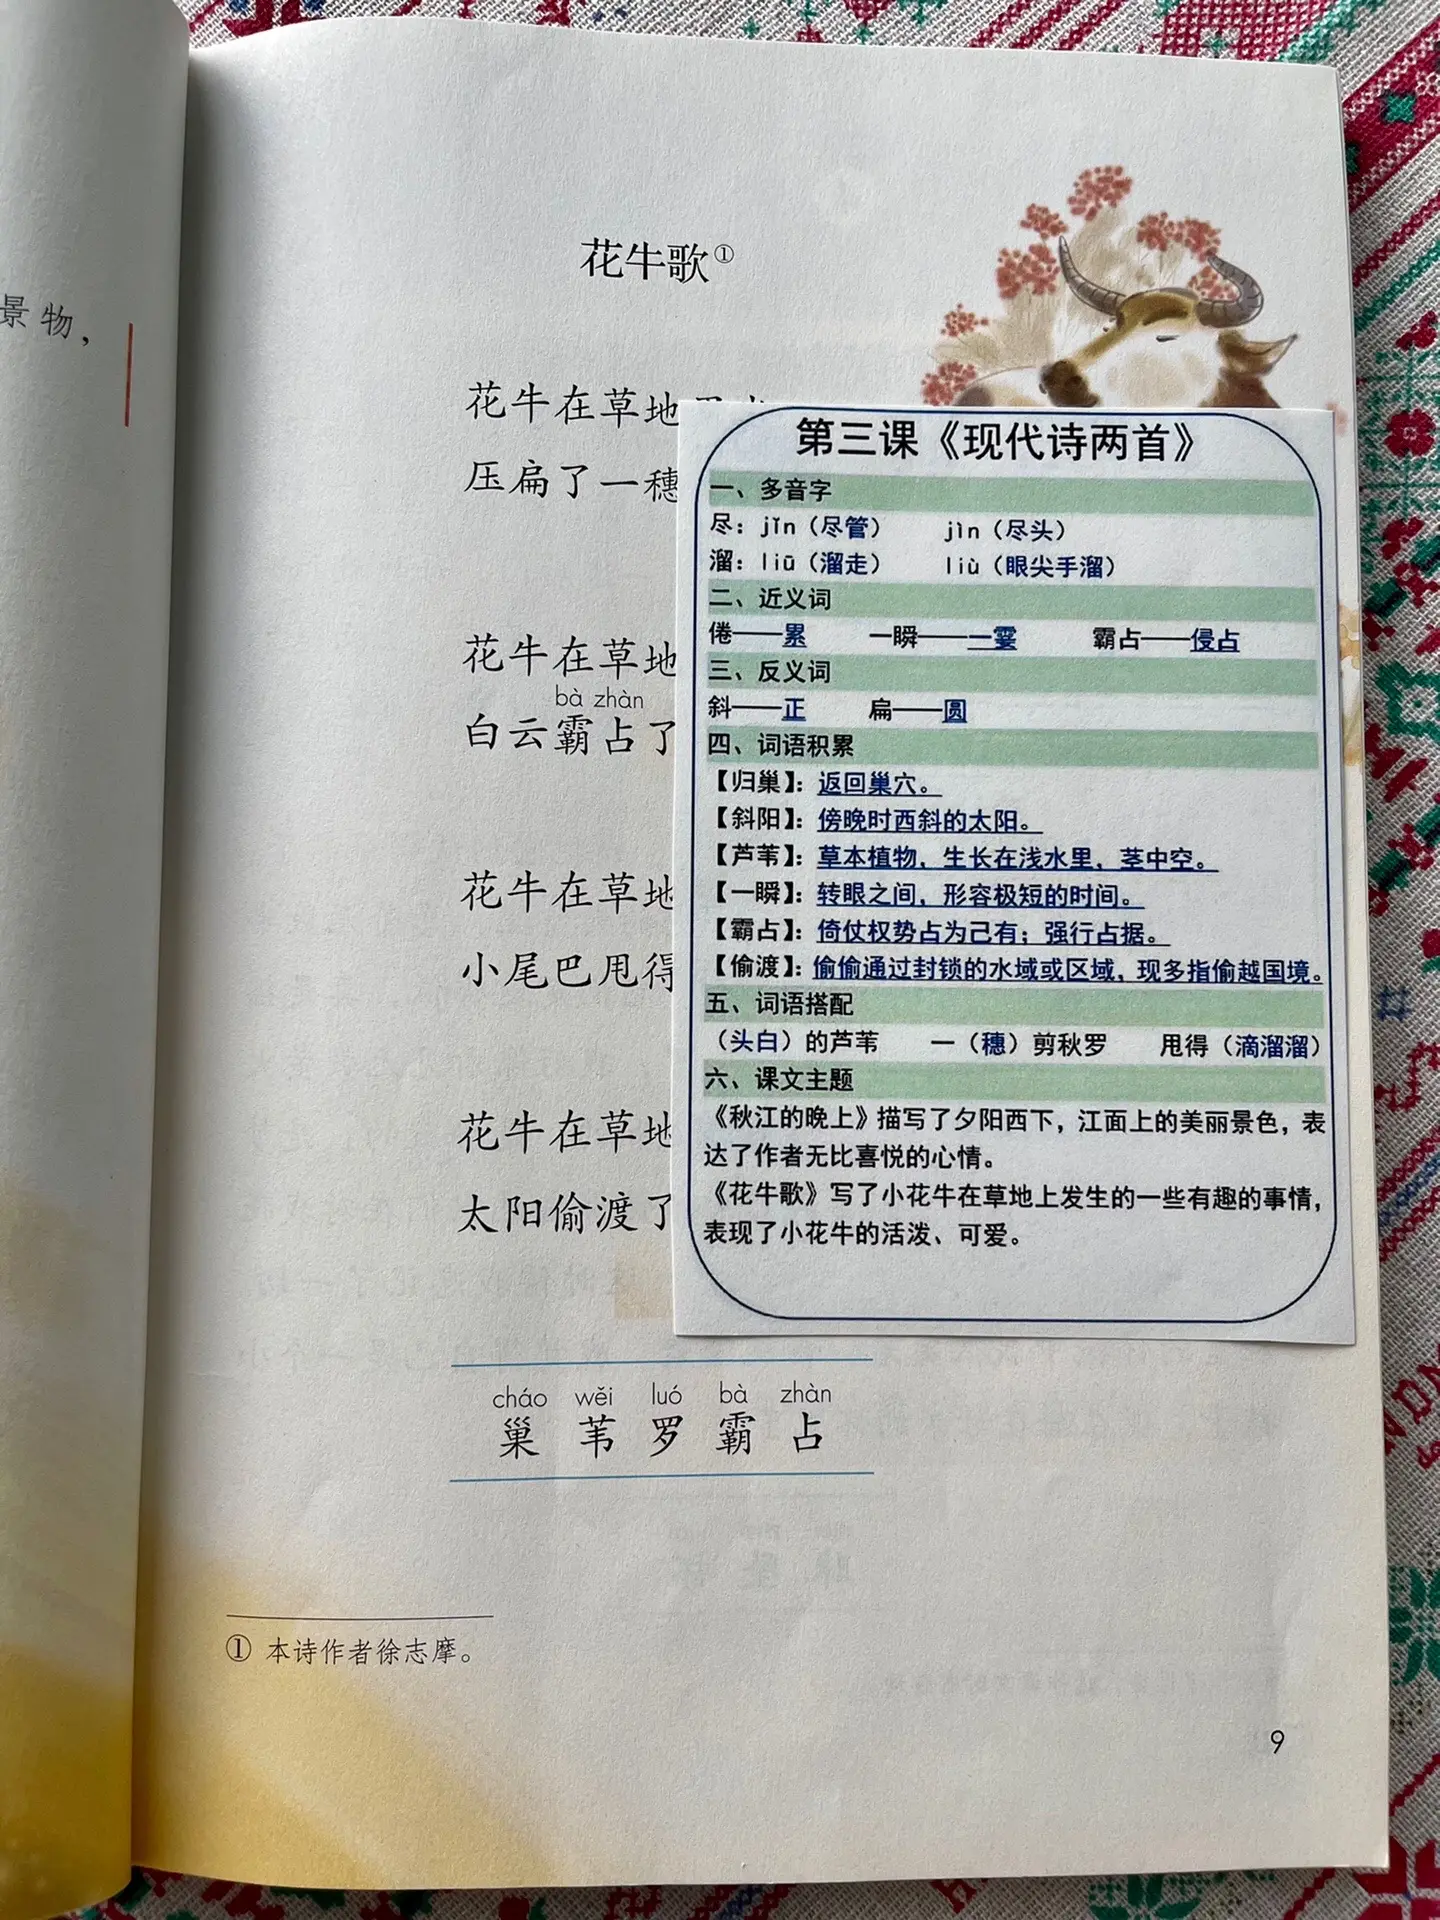 景物，
花牛歌①
花牛在草地
压扁了一穗
花牛在草地
bà zhàn
白云霸占了
花牛在草地
小尾巴甩得
花牛在草地
太阳偷渡了
第三课《现代诗两首》
一、多音字
尽：jǐn（尽管） jìn（尽头）
溜：liū（溜走） liù（眼尖手溜）
二、近义词
倦——累 一瞬——一霎 霸占——侵占
三、反义词
斜——正 扁——圆
四、词语积累
【归巢】：返回巢穴。
【斜阳】：傍晚时西斜的太阳。
【芦苇】：草本植物，生长在浅水里，茎中空。
【一瞬】：转眼之间，形容极短的时间。
【霸占】：倚仗权势占为己有；强行占据。
【偷渡】：偷偷通过封锁的水域或区域，现多指偷越国境。
五、词语搭配
（头白）的芦苇 一（穗）剪秋罗 甩得（滴溜溜）
六、课文主题
《秋江的晚上》描写了夕阳西下，江面上的美丽景色，表
达了作者无比喜悦的心情。
《花牛歌》写了小花牛在草地上发生的一些有趣的事情，
表现了小花牛的活泼、可爱。
cháo wěi luó bà zhàn
巢 苇 罗 霸 占
① 本诗作者徐志摩。
9